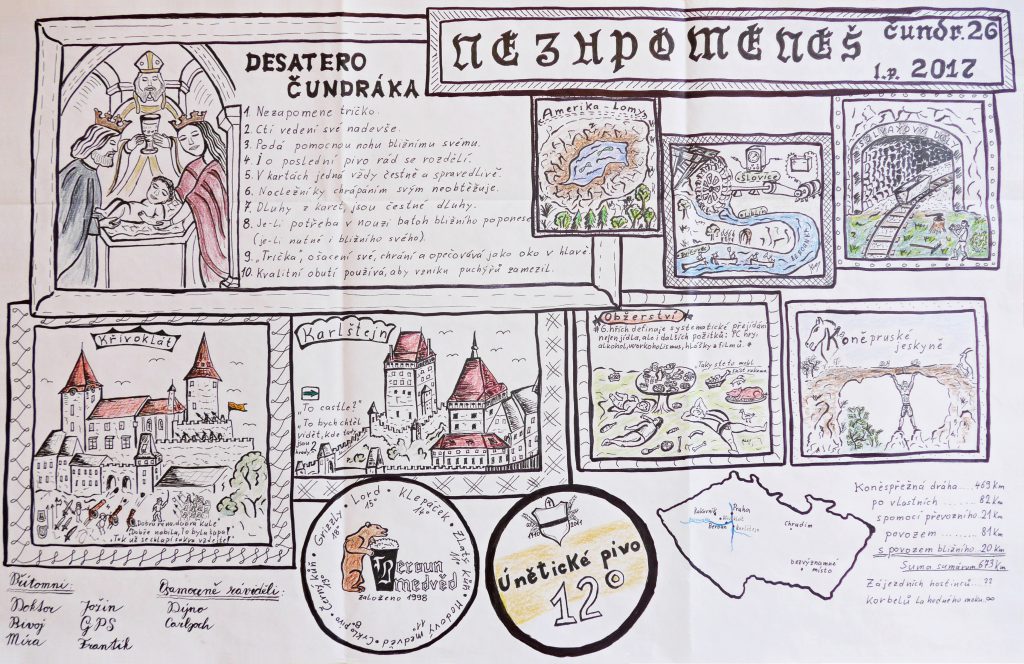 NEZAPOMENEŠ
čundr.26
l.p. 2017
DESATERO
ČUNDRÁKA
1. Nezapomene tričko.
2. Ctí vedení své nadevše.
3. Podá pomocnou nohu bližnímu svému.
4. I o poslední pivo rád se rozdělí.
5. V kartách jedná vždy čestně a spravedlivě.
6. Nocležníky chrápáním svým neobtěžuje.
7. Dluhy z karet, jsou čestné dluhy.
8. Je-li potřeba v nouzi batoh bližního poponese
(je-li nutné i bližního svého).
9. "Trička", ošacení své, chrání a opečovává jako oko v hlavě.
10. Kvalitní obutí používá, aby vzniku puchýřů zamezil.
Amerika - Lomy
Křivoklát
Karlštejn
"To castle?"
"To bych chtěl
vidět, kde
Obžerství
6.hřích definuje systematické přejídání
nejen jídla, ale i dalších požitků: PC hry,
alkohol, workoholismus, hlášky z filmů
Taky ste to mohl
Koněpruské
jeskyně
Grizzly 18°
Lord 15°
Klepáček 14°
Zlatý Kůň
Medový medvěd
Berounský
medvěd
založeno 1998
Únětické pivo
12°
Rakovník
Praha
Beroun
Chrudim
bezvýznamné
místo
Koněspřežná dráha....469 km
po vlastních ........82 km
s pomocí převozního. 21 km
povozem ........ 81 km
s povozem bližního. 20 km
Suma sumárum 673 km
Zájezdních hostinců... ??
Korbelů lahodného moku. ∞
Přítomni:
Doktor
Bivoj
Míra
Jořin
GPS
Frantík
Osamoceně závidili:
Dýno
Carlgoch